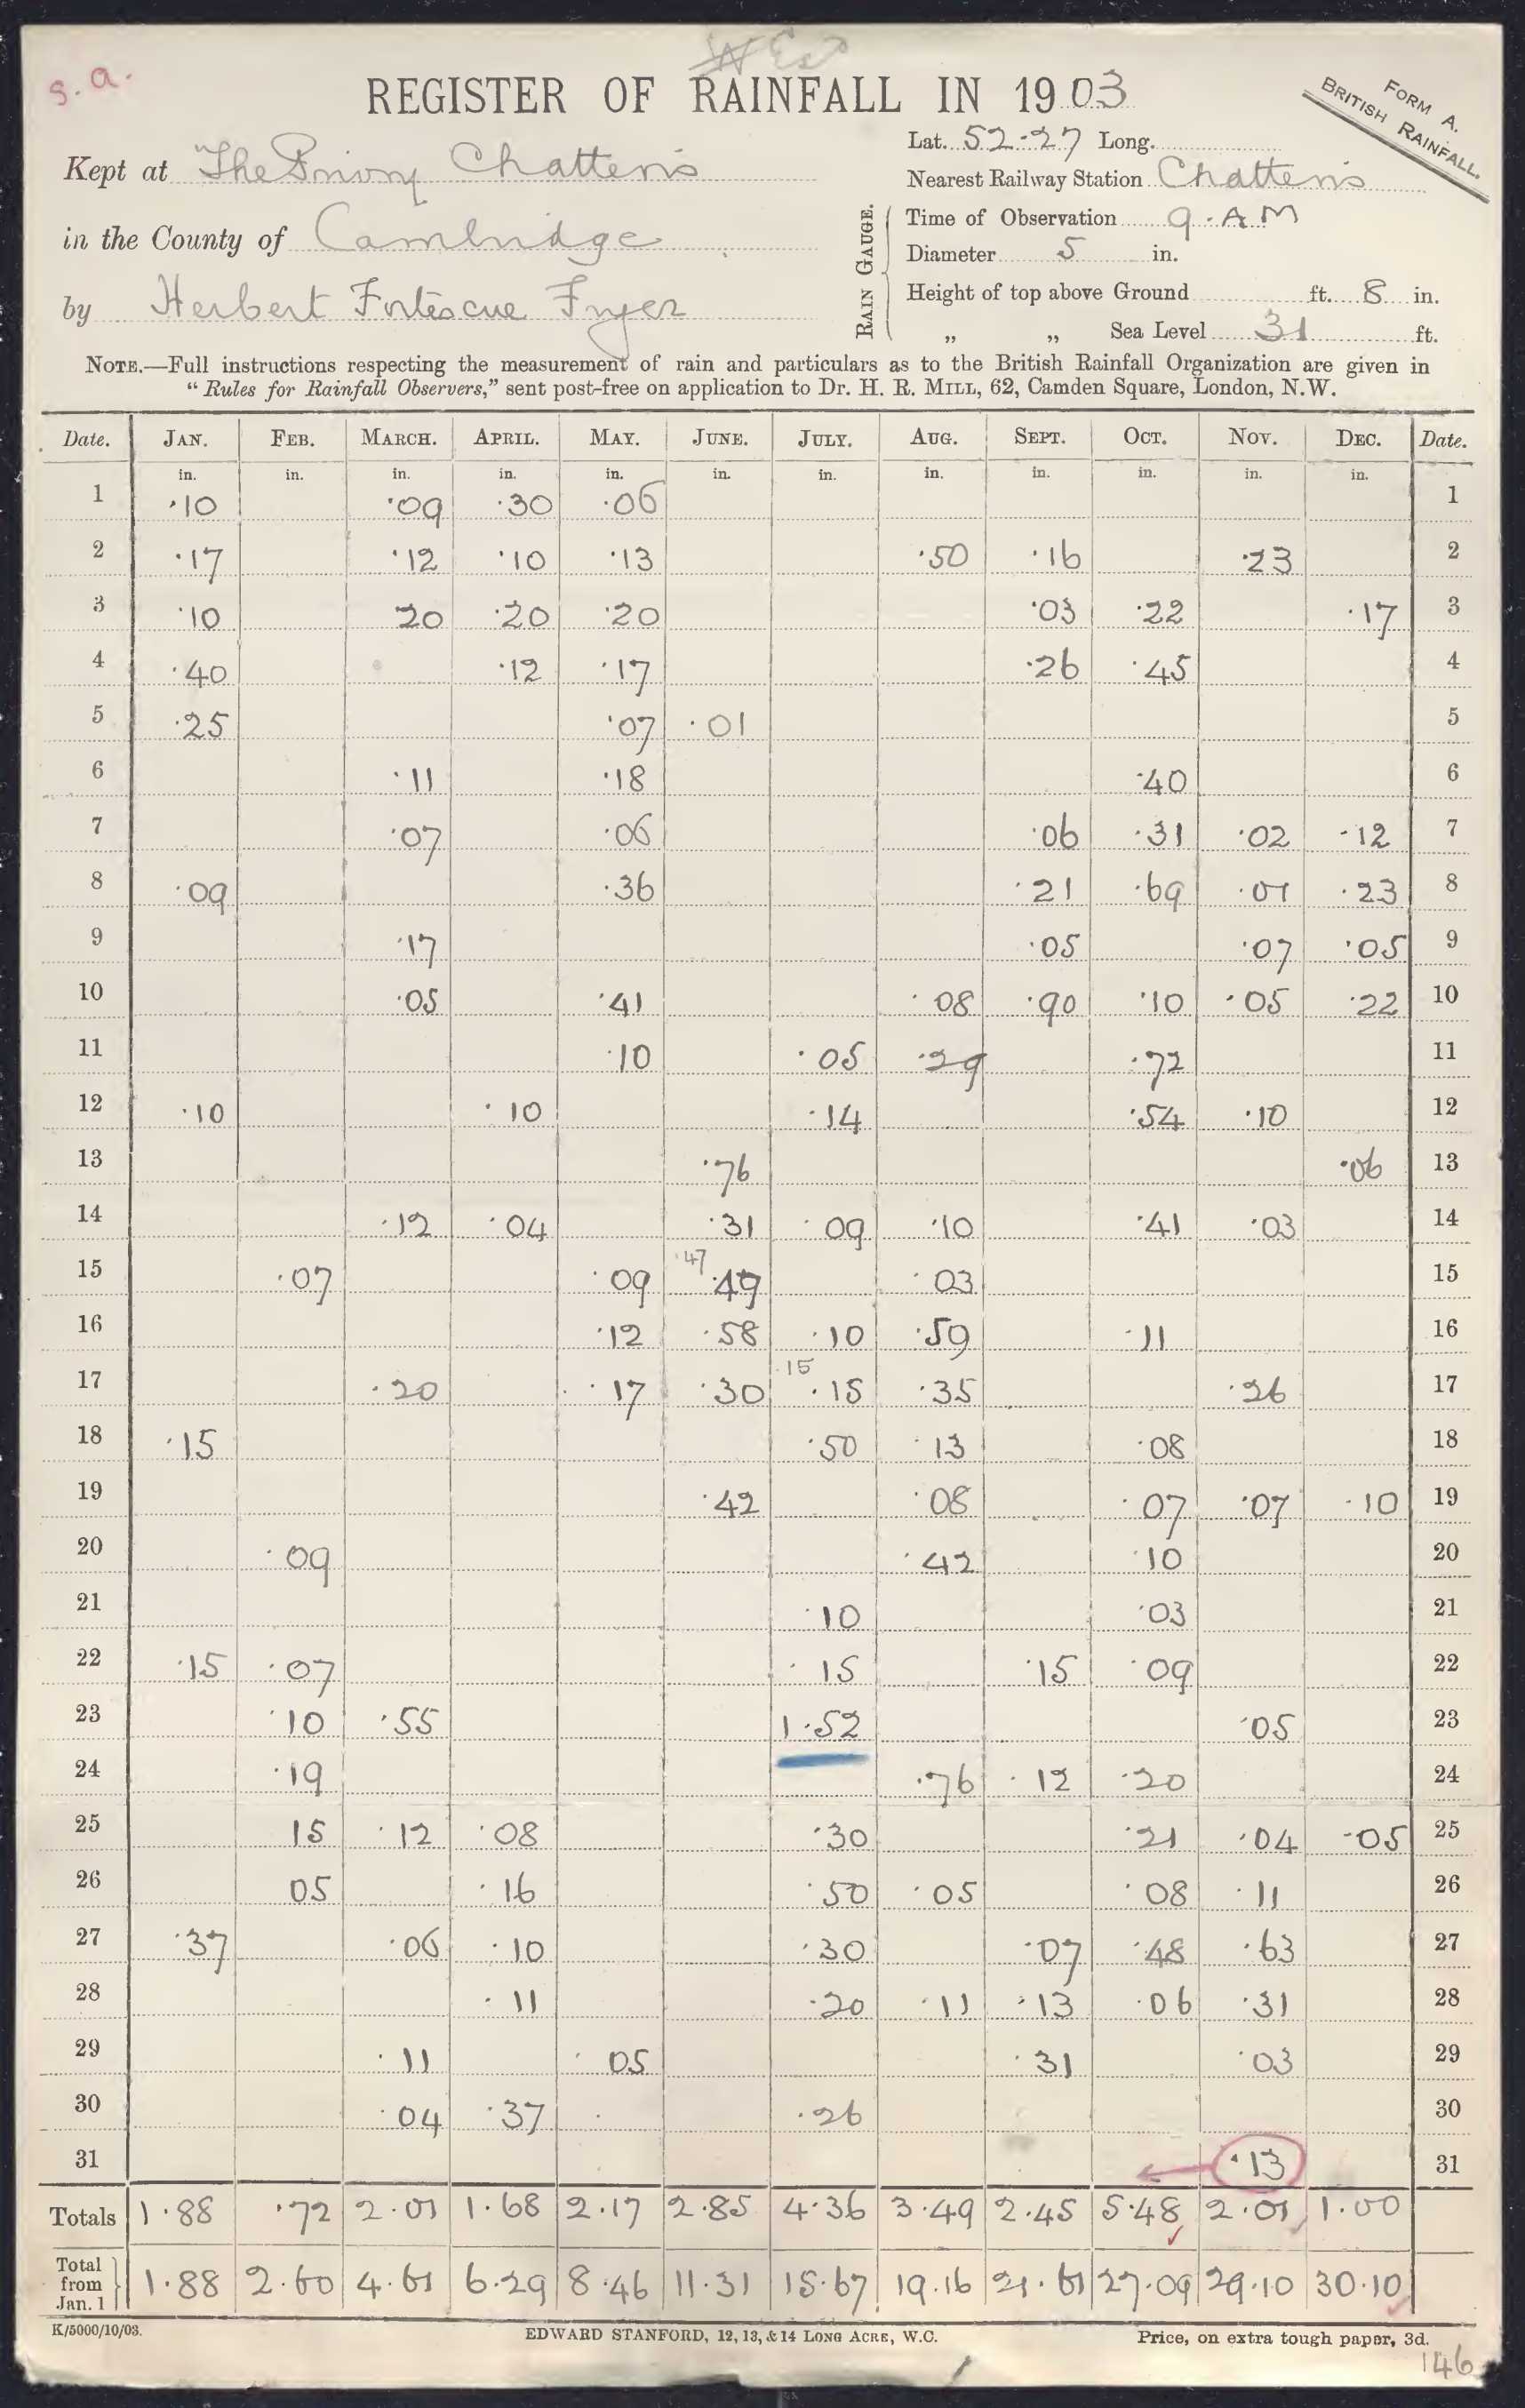 West
s.a.
REGISTER OF RAINFALL IN 1903
FORM A.
BRITISH RAINFALL.
Kept at The Priory Chatteris
in the County of Cambridge
by Herbert Fortescue Fryer
Lat. 52-27 Long.
Nearest Railway Station Chatteris
RAIN GAUGE.
Time of Observation 9.AM
Diameter 5 in.
Height of top above Ground ft. 8 in.
„ „ Sea Level 31 ft.
NOTE.—Full instructions respecting the measurement of rain and particulars as to the British Rainfall Organization are given in
"Rules for Rainfall Observers," sent post-free on application to Dr. H. R. MILL, 62, Camden Square, London, N.W.
Date. JAN. FEB. MARCH. APRIL. MAY. JUNE. JULY. AUG. SEPT. OCT. NOV. DEC. Date.
in. in. in. in. in. in. in. in. in. in. in. in.
1 ·10 ·09 ·30 ·06 1
2 ·17 ·12 ·10 ·13 ·50 ·16 ·23 2
3 ·10 20 ·20 ·20 ·03 ·22 ·17 3
4 ·40 ·12 ·17 ·26 ·45 4
5 ·25 ·07 ·01 5
6 ·11 ·18 ·40 6
7 ·07 ·06 ·06 ·31 ·02 ·12 7
8 ·09 ·36 ·21 ·69 ·01 ·23 8
9 ·17 ·05 ·07 ·05 9
10 ·05 ·41 ·08 ·90 ·10 ·05 ·22 10
11 ·10 ·05 ·29 ·72 11
12 ·10 ·10 ·14 ·54 ·10 12
13 ·76 ·06 13
14 ·12 ·04 ·31 ·09 ·10 ·41 ·03 14
15 ·07 ·09 ·47 ·49 ·03 15
16 ·12 ·58 ·10 ·59 ·11 16
17 ·20 ·17 ·30 ·15 ·15 ·35 ·26 17
18 ·15 ·50 ·13 ·08 18
19 ·42 ·08 ·07 ·07 ·10 19
20 ·09 ·42 ·10 20
21 ·10 ·03 21
22 ·15 ·07 ·15 ·15 ·09 22
23 ·10 ·55 1·52 ·05 23
24 ·19 ·76 ·12 ·20 24
25 15 ·12 ·08 ·30 ·21 ·04 ·05 25
26 05 ·16 ·50 ·05 ·08 ·11 26
27 ·37 ·06 ·10 ·30 ·07 ·48 ·63 27
28 ·11 ·20 ·11 ·13 ·06 ·31 28
29 ·11 ·05 ·31 ·03 29
30 ·04 ·37 ·26 30
31 ·13 31
Totals 1·88 ·72 2·01 1·68 2·17 2·85 4·36 3·49 2·45 5·48 2·01 1·00
Total from Jan. 1 1·88 2·60 4·61 6·29 8·46 11·31 15·67 19·16 21·61 27·09 29·10 30·10
K/5000/10/03. EDWARD STANFORD, 12, 13, & 14 LONG ACRE, W.C. Price, on extra tough paper, 3d.
146